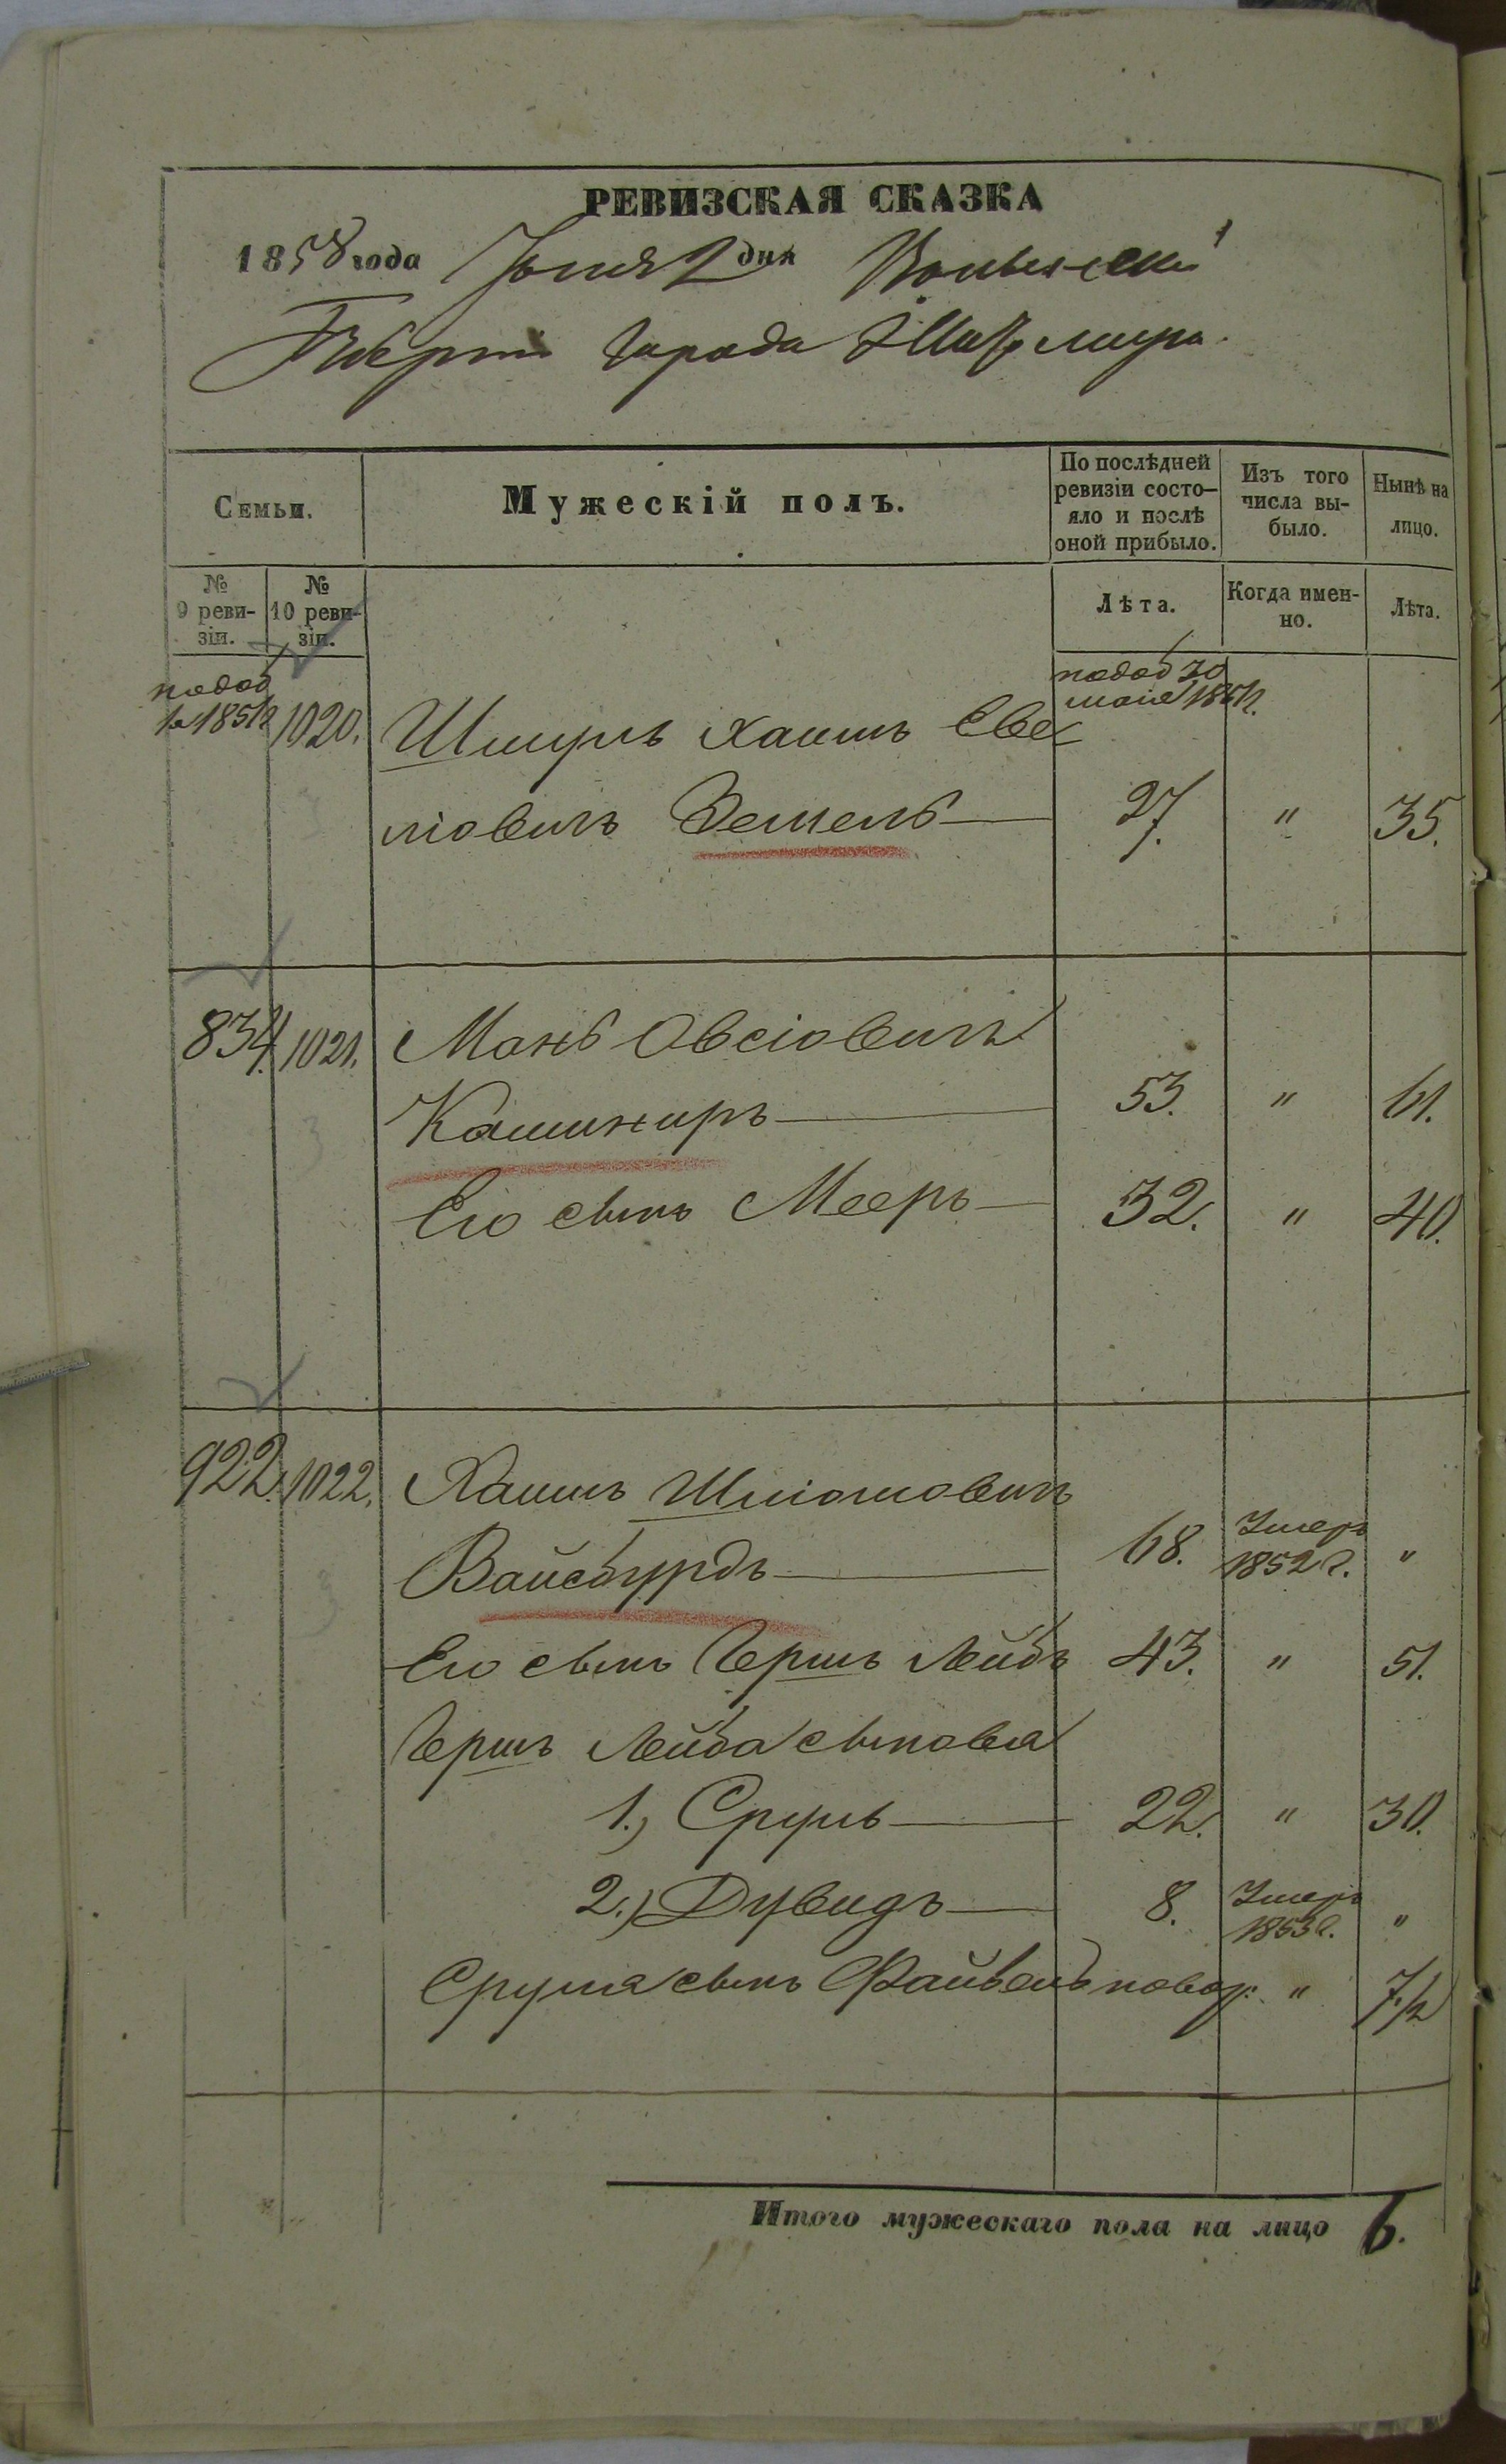 РЕВИЗСКАЯ СКАЗКА
1858 года Іюня 2 дня Волынской
Губерніи города Житомира.
Семьи.
Мужескій полъ.
По послѣдней ревизіи состо-
яло и послѣ оной прибыло.
Изъ того числа вы-
было.
Нынѣ на лицо.
№ 9 реви-
зіи.
№ 10 реви-
зіи.
Лѣта.
Когда имен-
но.
Лѣта.
1020. Шмуль Хаимъ Еве
ліовичъ 27. " 35.
834. 1021. Манѣ Овсіовичъ
Кашниръ 53. " 61.
Его сынъ Мееръ 32. " 40.
922. 1022. Хаимъ Шліомовичъ
Вайсбурдъ 68. Умеръ 1852 г. "
Его сынъ Гершъ Лейбъ 43. " 51.
Гершъ Лейба сыновья
1.) Сруль 22. " 30.
2.) Дувидъ 8. Умеръ 1853 г. "
Сруля сынъ Файвель новор: " 7 1/2
Итого мужескаго пола на лицо 6.